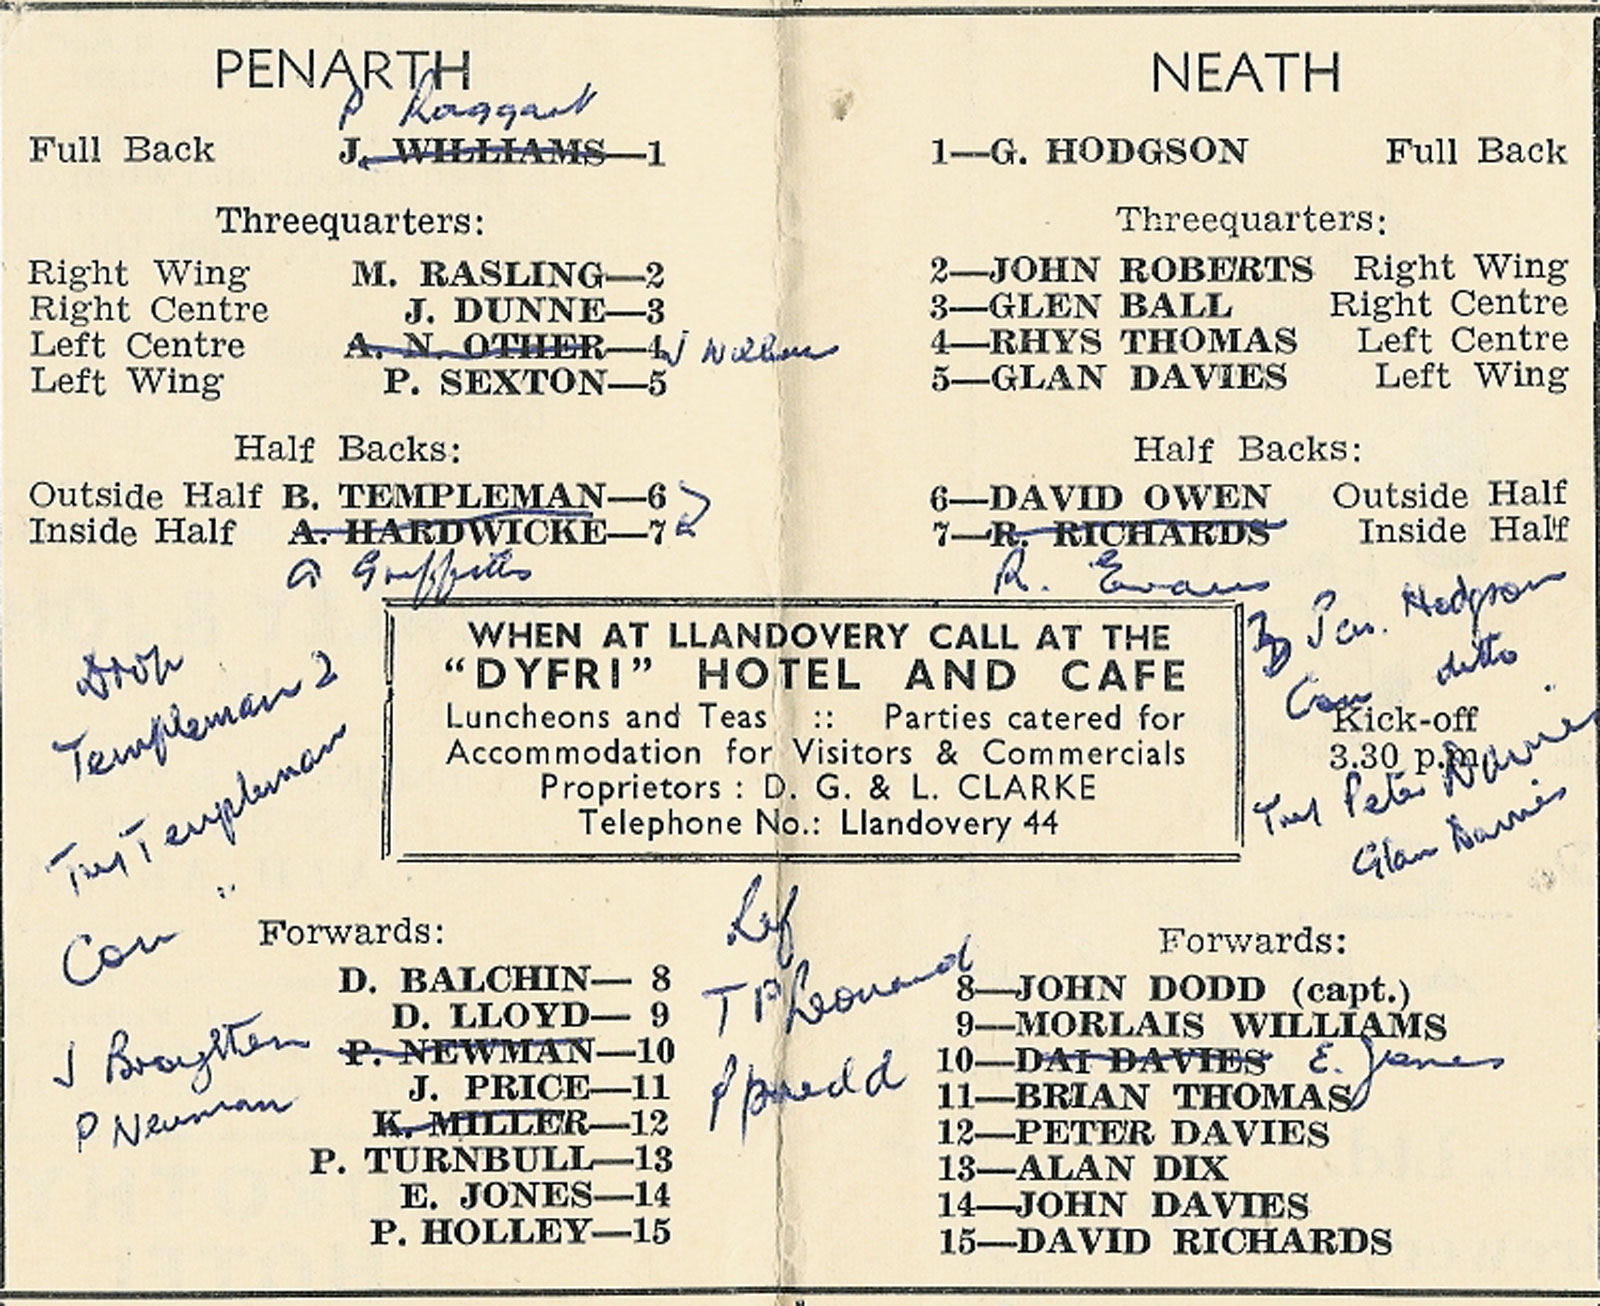 PENARTH
P Haggart
Full Back J. WILLIAMS—1
Threequarters:
Right Wing M. RASLING—2
Right Centre J. DUNNE—3
Left Centre A. N. OTHER—4 J Williams
Left Wing P. SEXTON—5
Half Backs:
Outside Half B. TEMPLEMAN—6
Inside Half A. HARDWICKE—7
Griffiths
Drop
Templeman 2
Try Templeman
Con "
Forwards:
D. BALCHIN— 8
D. LLOYD— 9
P. NEWMAN—10
J. PRICE—11
K. MILLER—12
P. TURNBULL—13
E. JONES—14
P. HOLLEY—15
J
P Newman
WHEN AT LLANDOVERY CALL AT THE
“DYFRI” HOTEL AND CAFE
Luncheons and Teas :: Parties catered for
Accommodation for Visitors & Commercials
Proprietors : D. G. & L. CLARKE
Telephone No.: Llandovery 44
Ref
T P Leonard
NEATH
1—G. HODGSON Full Back
Threequarters:
2—JOHN ROBERTS Right Wing
3—GLEN BALL Right Centre
4—RHYS THOMAS Left Centre
5—GLAN DAVIES Left Wing
Half Backs:
6—DAVID OWEN Outside Half
7—R. RICHARDS Inside Half
R. Evans
3 Pen. Hodgson
Con ditto
Kick-off
3.30 p.m.
Try Peter Davies
Glan Davies
Forwards:
8—JOHN DODD (capt.)
9—MORLAIS WILLIAMS
10—DAI DAVIES E. Jones
11—BRIAN THOMAS
12—PETER DAVIES
13—ALAN DIX
14—JOHN DAVIES
15—DAVID RICHARDS